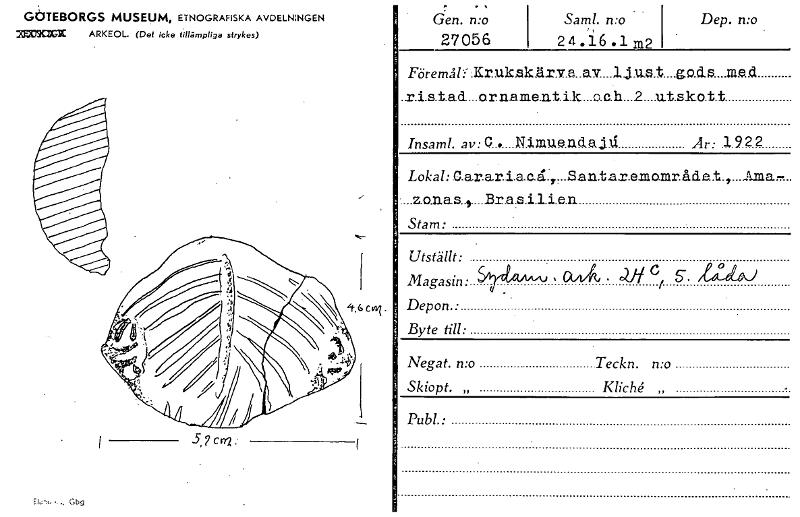 GÖTEBORGS MUSEUM, ETNOGRAFISKA AVDELNINGEN
ARKEOL. (Det icke tillämpliga strykes)
4,6 cm.
5,2 cm.
Gbg
Gen. n:o Saml. n:o Dep. n:o
27056 24.16.1m2
Föremål: Krukskärva av ljust gods med
ristad ornamentik och 2 utskott
Insaml. av: C. Nimuendajú År: 1922
Lokal: Carariacá, Santaremområdet, Ama-
zonas, Brasilien
Stam:
Utställt:
Magasin: Sydam. ark. 2H C, 5. låda
Depon.:
Byte till:
Negat. n:o Teckn. n:o
Skiopt. „ Kliché „
Publ.: